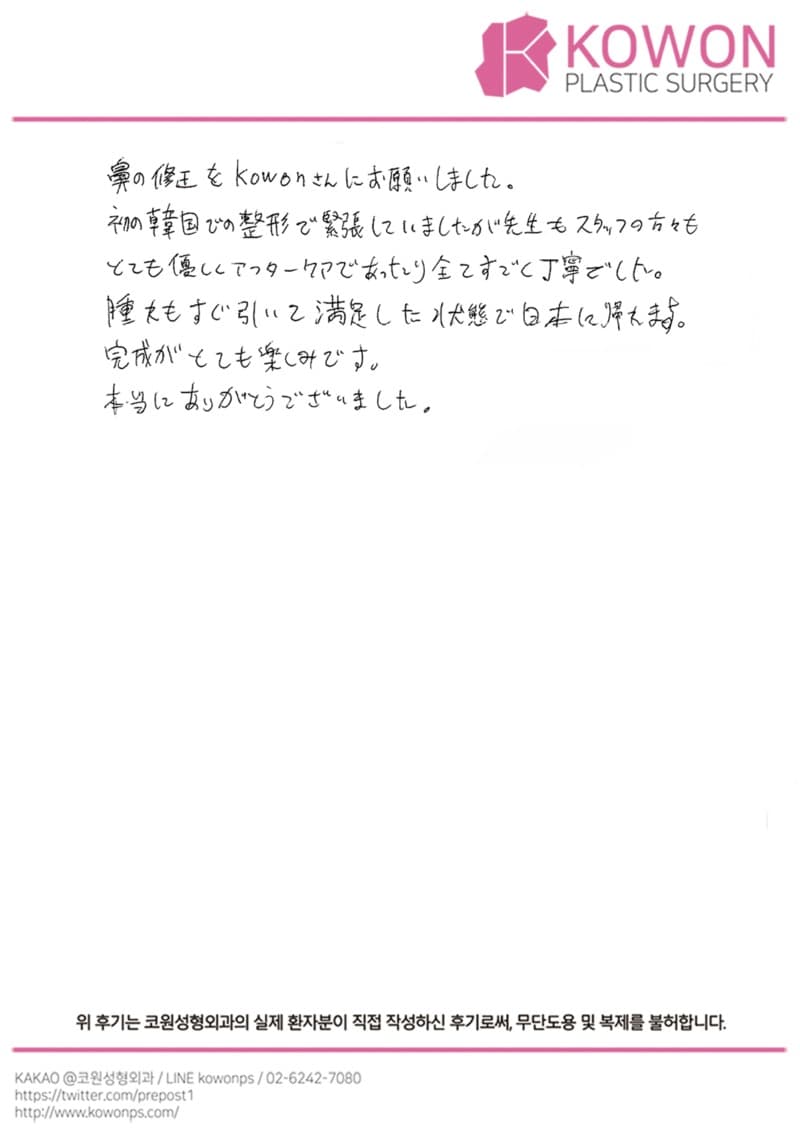 KOWON
PLASTIC SURGERY
鼻の修正をkowonさんにお願いしました。
初の韓国での整形で緊張していましたが先生もスタッフの方々も
とても優しくアフターケアであったり全てすごく丁寧でした。
腫れもすぐ引いて満足した状態で日本に帰えます。
完成がとても楽しみです。
本当にありがとうございました。
위 후기는 코원성형외과의 실제 환자분이 직접 작성하신 후기로써, 무단도용 및 복제를 불허합니다.
KAKAO @코원성형외과 / LINE kowonps / 02-6242-7080
https://twitter.com/prepost1
http://www.kowonps.com/